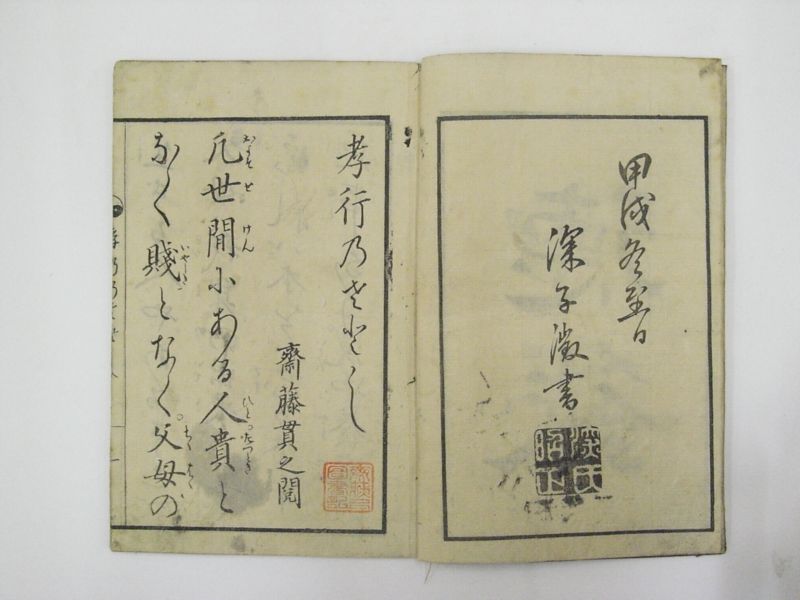 甲戌冬至日
深子徴書
深氏
昭正
孝行乃さとし
齋藤貫之閲
凡世間にある人貴と
なく賤となく父母の